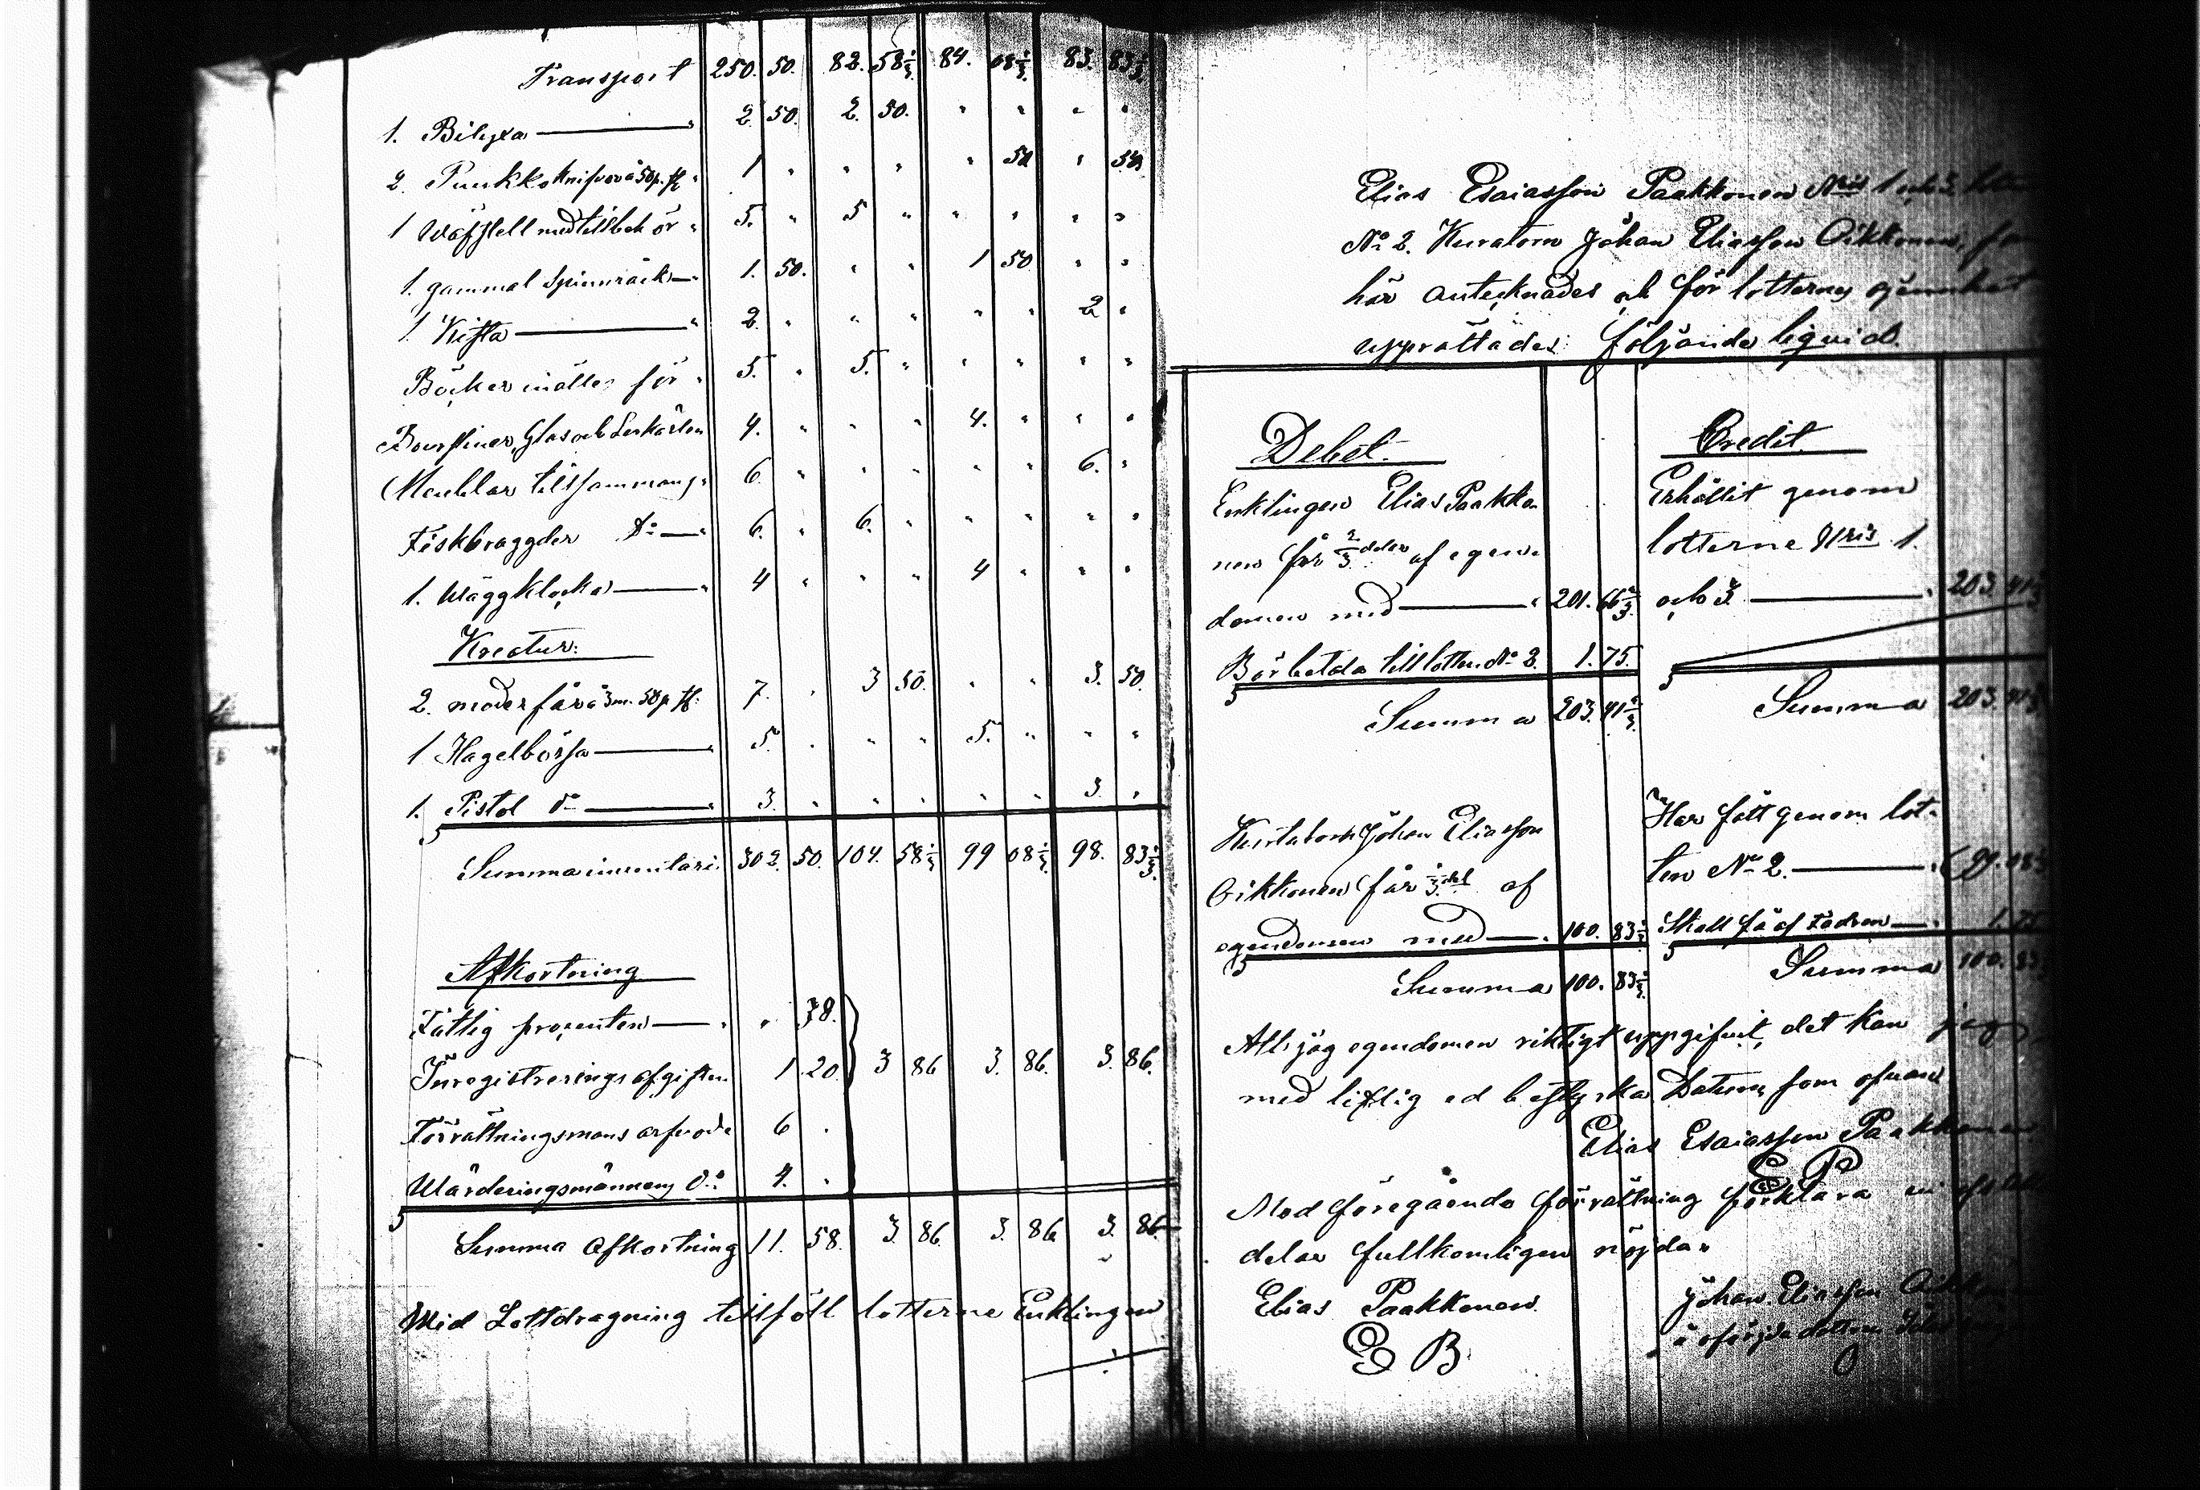 Transport 250. 50. 82. 58 1/3. 84. 08 1/3. 83. 83 1/3.
1. Bilyxa — " 2. 50. 2. 50. " " " "
2. Puukko knifvar à 50 p. st. " 1 " " " " 50 " 50
1 Wäfstell med tillbehör " 5. " 5 " " " " "
1. gammal Spinnråck — " 1. 50. " " 1 50 " "
1. Kista — " 2. " " " " " 2 "
Böcker inalles för " 5. " 5. " " " " "
Glas och Lerkärlen 4. " " " 4. " " "
Meublar tillsammans " 6. " " " " " 6. "
Fiskbraggder Do — " 6. " 6. " " " " "
1. Wäggklocka — " 4 " " " 4 " " "
Kreatur:
2. moderfår à 3 m. 50 p. st. 7. " 3 50. " " 3. 50.
1 Hagelbössa — " 5. " " " 5. " " "
1. Pistol do — " 3. " " " " " 3. "
Summa inventari 302. 50. 104. 58 1/3 99 08 1/3 98. 83 1/3.
Afkortning
Fattig procenten — " " 38.
Inregistrerings afgiften 1. 20. 3 86 3. 86. 3. 86.
Förrättningsmans arfvode 6 "
Wärderingsmännens do 4. "
Summa afkortning 11. 58. 3. 86. 3. 86 3. 86
Wid Lottdragning tillföll lotterne Enklingen
Elias Esaiasson Paakkonen Nris 1 och 3.
No 2. Kuratorn Johan Eliasson Oikkonen,
här antecknades och för lotternas
upprättades följande liquid.
Debet.
Enklingen Elias Paakko
nen får 2/3 delar af egen
domen med — " 201. 66 2/3.
Bör betala till lotten No 2. 1. 75.
Summa 203. 41 2/3.
Credit.
Erhållit genom
lotterne Nris 1.
och 3 — " 203. 41
Summa 203. 41
Kuratorn Johan Eliasson
Oikkonen får 1/3 del af
egendomen med — " 100. 83 1/3
Summa 100. 83 1/3.
Har fått genom lot
ten No 2. —
Skall få af fadren — " 1. 75
Summa 100. 83
Att jag egendomen riktigt uppgifvit, det kan jag
med liflig ed bestyrka Datum som ofvan
Elias Esaiasson Paakkonen
E P
Med föregående förrättning förklara vi
delar fullkomligen nöjda.
Elias Paakkonen.
E P.
Johan Eliasson